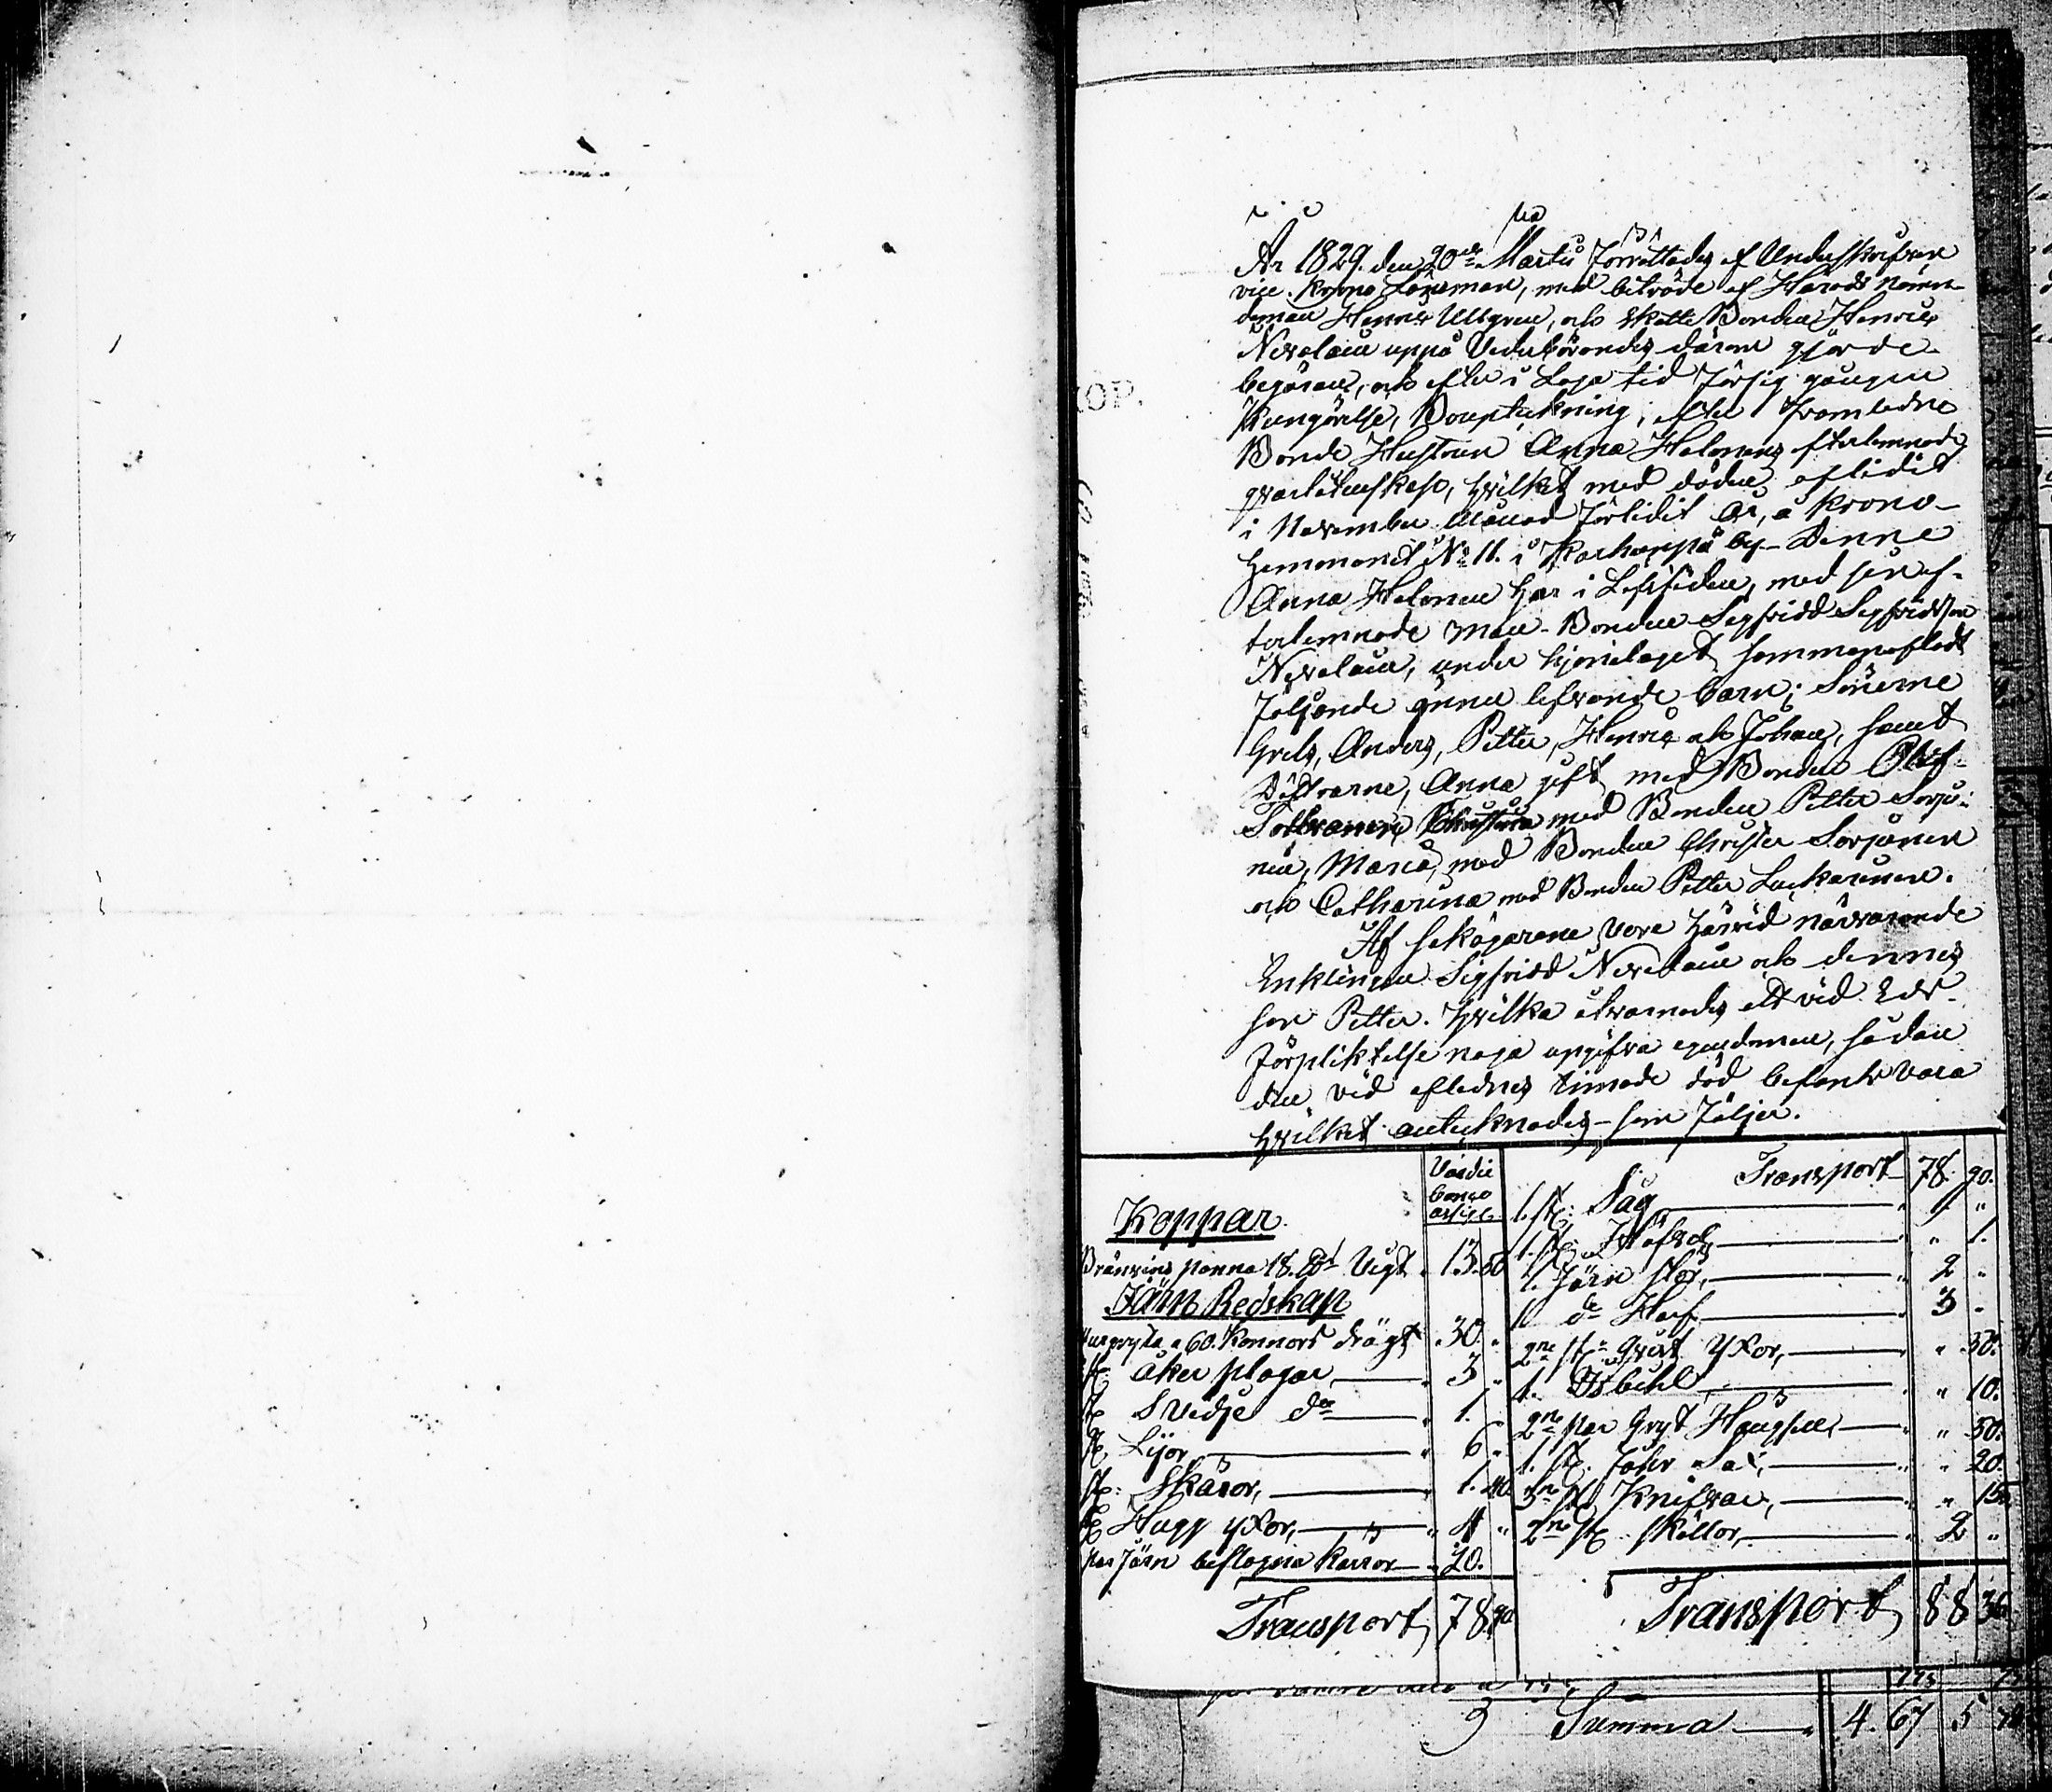 År 1829. den 20de Martii Förrättades af Underskrifven
vice Krono Länsman, med biträde af Härads nämn-
deman Henrik Ullgren, och skatte Bonden Henrik
Nevalain uppå Vederbörandes därom gjorde
begäran, och efter i Laga tid Försig gången
Kungörelse, Bouptekning, efter Framledne
Bonde Hustrun Anna Halonens efterlemnade
qvarlåtenskap, hvilken med döden aflidit
i November Månad Förlidit År, å Krono-
hemmanet No 11. i Karhanpää by - Denne
Anna Halonen har i Lifstiden, med sin ef-
terlemnade Man - Bonden Sigfridd Sigfridsson
Nevalain, under hjonelaget sammanaflat
Följande ännu lefvande barn; Sönerne
Grels, Anders, Petter, Henric och Johan, samt
Döttrarne, Anna gift med Bonden Olof
Tolvanen, Christina med Bonden Petter Sorjo-
nen, Maria, med Bonden Christer Sorjonen
och Catharina med Bonden Petter Laukarinen.
Af sakägarene vore härvid närvarande
Enklingen Sigfridd Nevalain och dennes
son Petter. Hvilka åtvarnades att vid Eds-
Förpliktelse noga uppgifva egendomen, sådan
den vid aflednes timade död befants vara
hvilket anteknades - som Följer.
Värdie
banco
assig.
Koppar.
Bränvins panna 18. Vigt 13.50
Järn Redskap
60. Kannors drägt 30 "
st. åker plogar, 3 "
st Svedje do 1.
st. Lijor 6 "
st: Skäror, 1.40
st Hugg yxor, 4 "
par Järn beslagna kärror 20.
Transport 78.90
Transport 78. 90.
1. st: Såg 1 "
1. st. Höfvel " 1.
1. Järn stör, 2 "
1 do Haf 3 -
2ne st. Yxor, " 50.
1. Isbihl " 10.
2ne par Gryt Hängslen " 50.
1. st. Fåhr Sax, " 20.
3ne st Knifvar, " 15.
2ne st skållor, 2 "
Transport 88 36
Summa 4. 67 5